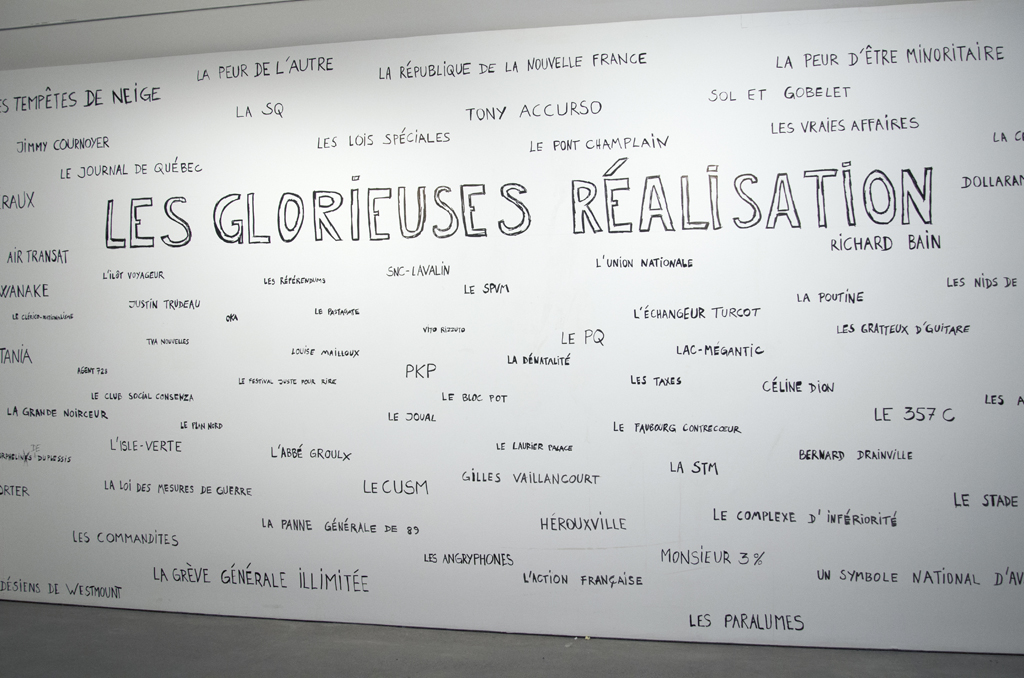 LA PEUR DE L'AUTRE
LA RÉPUBLIQUE DE LA NOUVELLE FRANCE
LA PEUR D'ÊTRE MINORITAIRE
TEMPÊTES DE NEIGE
LA SQ
TONY ACCURSO
SOL ET GOBELET
JIMMY COURNOYER
LES LOIS SPÉCIALES
LE PONT CHAMPLAIN
LES VRAIES AFFAIRES
LA
LE JOURNAL DE QUÉBEC
LES GLORIEUSES RÉALISATION
DOLLARAM
RAUX
RICHARD BAIN
AIR TRANSAT
L'ILÔT VOYAGEUR
LES RÉFÉRENDUMS
SNC-LAVALIN
L'UNION NATIONALE
WANAKE
LE SPVM
LES NIDS DE
JUSTIN TRUDEAU
LA POUTINE
LE CLÉRICO-NATIONALISME
OKA
LE BASTARATE
L'ÉCHANGEUR TURCOT
VITO RIZZUTO
LES GRATTEUX D'GUITARE
TVA NOUVELLES
LE PQ
TANIA
LOUISE MAILLOUX
LA DÉNATALITÉ
LAC-MÉGANTIC
AGENT 728
LE FESTIVAL JUSTE POUR RIRE
PKP
LES TAXES
CÉLINE DION
LE CLUB SOCIAL CONSENZA
LE BLOC POT
LES A
LA GRANDE NOIRCEUR
LE PLAN NORD
LE JOUAL
LE 357 C
LE FAUBOURG CONTRECOEUR
L'ISLE-VERTE
L'ABBÉ GROULX
LE LAURIER PALACE
BERNARD DRAINVILLE
DE
DUPLESSIS
LA STM
GILLES VAILLANCOURT
ORTER
LA LOI DES MESURES DE GUERRE
LE CUSM
LE STADE
LA PANNE GÉNÉRALE DE 89
HÉROUXVILLE
LE COMPLEXE D'INFÉRIORITÉ
LES COMMANDITES
LES ANGRYPHONES
MONSIEUR 3%
LA GRÈVE GÉNÉRALE ILLIMITÉE
L'ACTION FRANÇAISE
UN SYMBOLE NATIONAL D'AV
DÉSIENS DE WESTMOUNT
LES PARALUMES